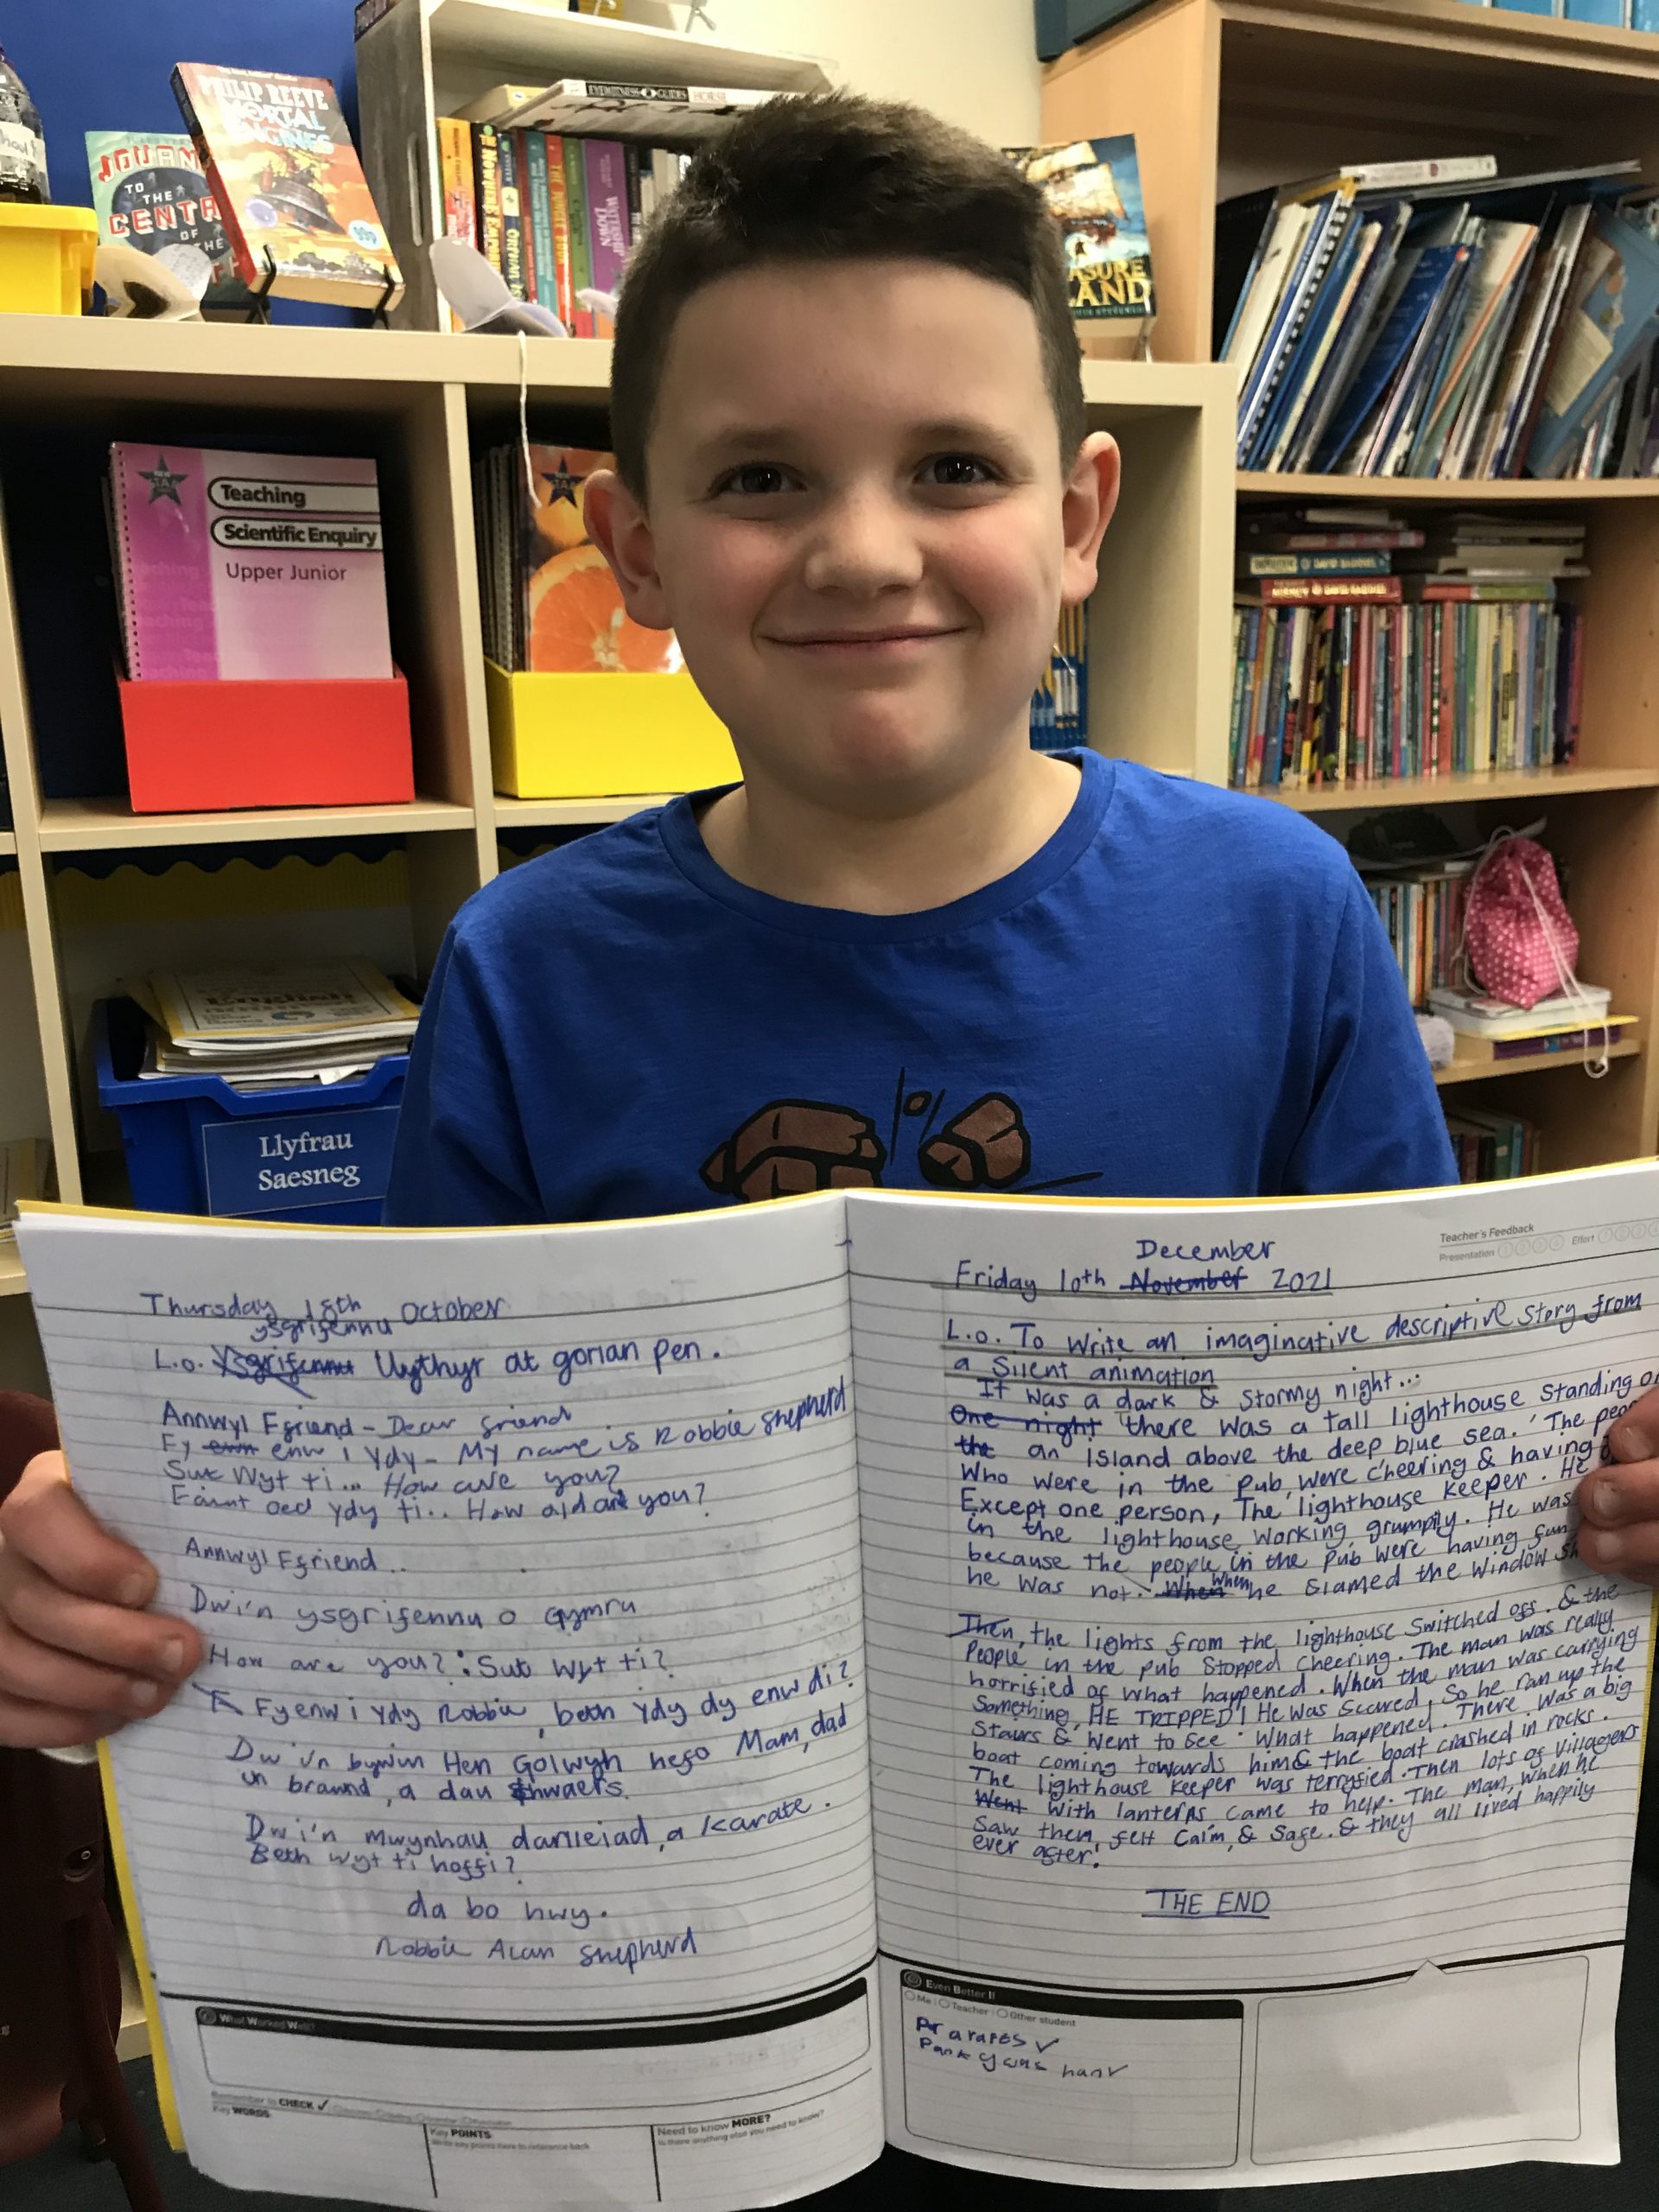 PHILIP REEVE
MORTAL
ENGINES
99p
TO
THE
CENTR
OF
THE
EYEWITNESS GUIDES
HORSE
WATERSHIP
DOWN
ASURE
LAND
Teaching
Scientific Enquiry
Upper Junior
Llyfrau
Saesneg
Thursday 18th October
ysgrifennu
L.o. Ysgrifennu Llythyr at gorian pen.
Annwyl Ffriend - Dear friend
Fy ewn enw i Ydy - My name is Robbie Shepherd
Sut Wyt ti... How are you?
Faint oed ydy ti.. How old are you?
Annwyl Ffriend ..
Dwi'n ysgrifennu o Gymru
How are you? : Sut Wyt ti?
Fy enw i Ydy Robbie, beth Ydy dy enw di?
Dw i'n bywin Hen Golwyn hefo Mam, dad
un brawd, a dau chwaers.
Dwi'n mwynhau darlleiad, a Karate.
Beth wyt ti hoffi?
da bo hwy.
Robbie Alan Shepherd
What Worked Well?
Remember to CHECK ✓
Key WORDS
Key POINTS
Need to know MORE?
Is there anything else you need to know?
Teacher's Feedback
Presentation
Effort
December
Friday 10th November 2021
L.o. To Write an imaginative descriptive story from
a Silent animation
It was a dark & Stormy night...
One night there was a tall lighthouse Standing on
the an island above the deep blue sea. The peop
Who were in the pub, were cheering & having
Except one person, The lighthouse Keeper. He
in the lighthouse, working, grumpily. He was
because the people in the pub were having fun
he was not. When When he Slamed the Window
Then, the lights from the lighthouse Switched off. & the
People in the pub Stopped cheering. The man was really
horrified of what happened. When the man was carrying
Something, HE TRIPPED! He was Scared, So he ran up the
Stairs & went to See. What happened. There was a big
boat coming towards him & the boat crashed in rocks.
The lighthouse Keeper was terryfied. Then lots of Villagers
Went With lanterns came to help. The man, when he
Saw them, felt Calm, & Safe. & they all lived happily
ever after!
THE END
Even Better If
Me Teacher Other student